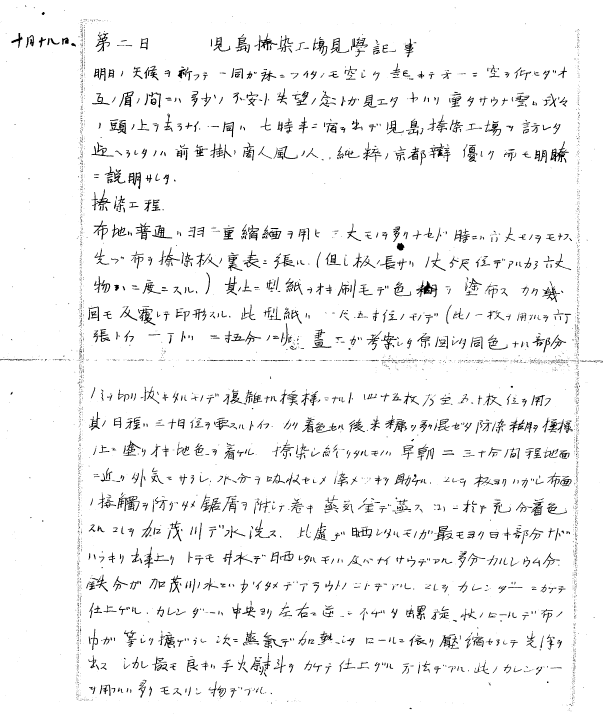 十月十九日、
第二日 児島捺染工場見學記事
明日ノ天候ヲ祈ツテ一同ガ氶ニツイタノモ空シク 起 キテ 一ニ 空ヲ仰ヒダガ
互ノ眉ノ間ニハ多少ノ不安ト失望ノ念トガ見エタ ヤハリ重タサウナ雲ハ我々
ノ頭ノ上ヲ去ラナイ、一同ハ七時半ニ宿ヲ出デ児島捺染工場ヲ訪レタ
迎ヘラレタノハ前垂掛ノ商人風ノ人、純粋ノ京都辯 優シク而モ明瞭
ニ説明サレタ。
捺染工程.
布地ハ普通ハ羽二重縮緬ヲ用ヒ 三丈モノヲ多クナセド時ニハ六丈モノヲモナス
先ヅ布ヲ捺染板ノ裏表ニ張ル。(但シ板ノ長サハ1丈5尺位デアルカラ六丈
物ハ二度ニスル。) 其上ニ型紙ヲオキ刷毛デ色糊ヲ塗布ス カク幾
回モ反覆シテ印形スル. 此型紙ハ一尺五寸位ノモノデ(此ノ一枚ヲ用フルヲ六丁
張トイフ 一丁ドハニ 畫工ガ考案シタ原図ヨリ同色ナル部分
ノミヲ切リ抜キタルモノデ複雑ナル模様ニナルト四十五枚乃至五十枚位ヲ用フ
其ノ日程ハ三十日位ヲ要スルトイフ. カク着色セル後、米糠ヲ多ク混ゼタ防染糊ヲ模様
ノ上ニ塗リオキ地色ヲ着ケル. 捺染シ終リタルモノハ早朝二三十分間程地面
ニ近ク外気ニサラシ、水分ヲ吸収セシメ染メツキヲ助ケル. コレヲ板ヨリハガシ布面
ノ接觸ヲ防グタメ鋸屑ヲ附シ巻キ蒸気釜デ蒸ス コヽニ於テ充分着色
スル コレヲ加茂川デ水洗ス. 此處デ晒シタルモノガ最モヨク白キ部分ナドハ
ハツキリ出来上リ トテモ井水デ晒シタルモノハ及バナイサウデアル 多分カルシウム分.
鉄分ガ加茂川ノ水ニハナイタメデアラウトノコトデアル. コレヲカレンダーニカケテ
仕上ゲル. カレンダーハ中央ヨリ左右ニ逆ニネヂタ螺旋状ノロールデ布ノ
巾ガ等シク擴ゲラレ次ニ蒸氣デ加熱シタロールニ依リ壓縮セラレテ光澤ヲ
出ス シカシ最モ良キハ手火熨斗ヲカケテ仕上グル方法デアル. 此ノカレンダー
ヲ用フルハ多クモスリン物デアル.